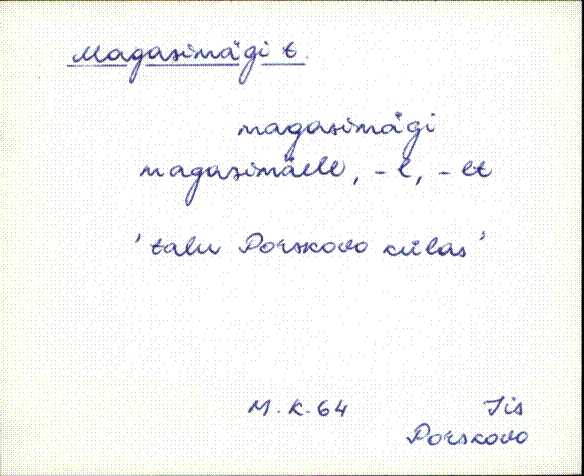 Magasimägi t.
magasimägi
magasimäelle, -l, -lt
'talu Porskovo külas'
M.K.64 Iis
Porskovo